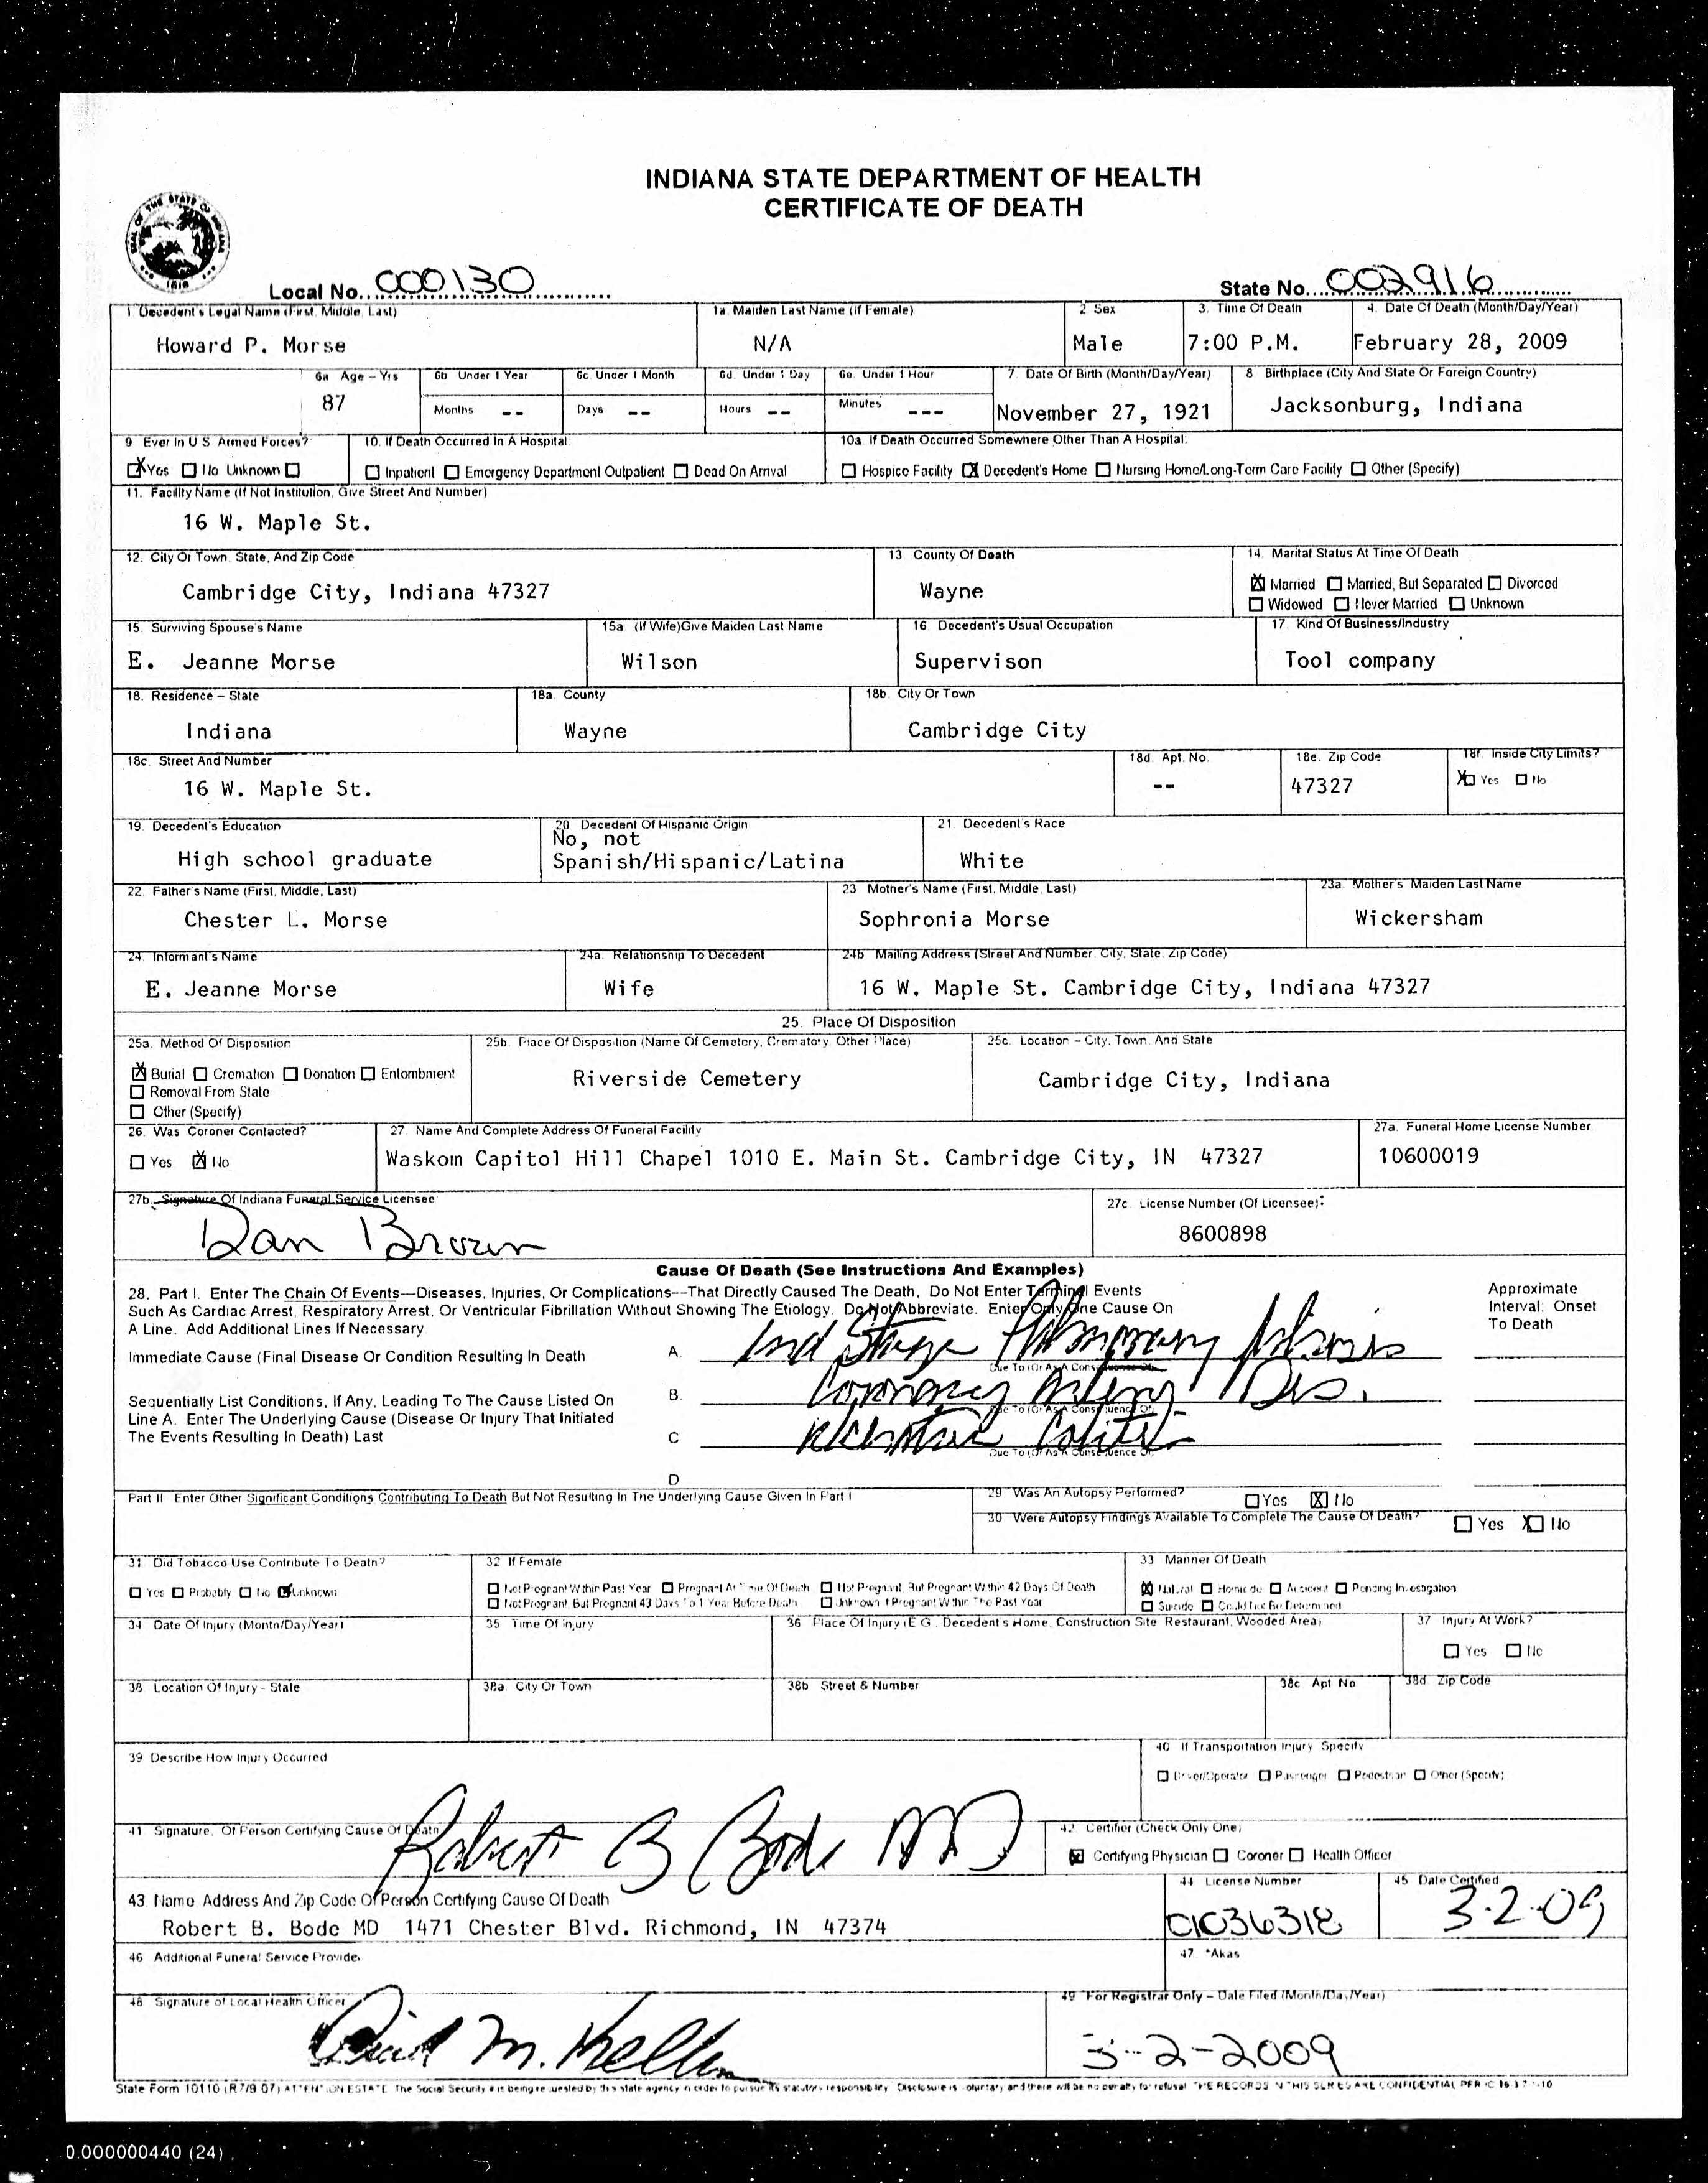 INDIANA STATE DEPARTMENT OF HEALTH
CERTIFICATE OF DEATH
SEAL OF THE STATE OF INDIANA
1816
Local No. 000130
State No. 002916
1 Decedent's Legal Name (First, Middle, Last)
Howard P. Morse
1a. Maiden Last Name (if Female)
N/A
2. Sex
Male
3. Time Of Death
7:00 P.M.
4. Date Of Death (Month/Day/Year)
February 28, 2009
6a Age – Yrs
87
6b Under 1 Year
Months --
6c. Under 1 Month
Days --
6d. Under 1 Day
Hours --
6e. Under 1 Hour
Minutes ---
7. Date Of Birth (Month/Day/Year)
November 27, 1921
8 Birthplace (City And State Or Foreign Country)
Jacksonburg, Indiana
9. Ever In U S Armed Forces?
X Yes No Unknown
10. If Death Occurred In A Hospital:
Inpatient Emergency Department Outpatient Dead On Arrival
10a. If Death Occurred Somewhere Other Than A Hospital:
Hospice Facility X Decedent's Home Nursing Home/Long-Term Care Facility Other (Specify)
11. Facility Name (If Not Institution, Give Street And Number)
16 W. Maple St.
12. City Or Town, State, And Zip Code
Cambridge City, Indiana 47327
13. County Of Death
Wayne
14. Marital Status At Time Of Death
X Married Married, But Separated Divorced
Widowed Never Married Unknown
15. Surviving Spouse's Name
E. Jeanne Morse
15a. (If Wife)Give Maiden Last Name
Wilson
16. Decedent's Usual Occupation
Supervison
17. Kind Of Business/Industry
Tool company
18. Residence – State
Indiana
18a. County
Wayne
18b. City Or Town
Cambridge City
18c. Street And Number
16 W. Maple St.
18d. Apt. No.
--
18e. Zip Code
47327
18f. Inside City Limits?
X Yes No
19. Decedent's Education
High school graduate
20. Decedent Of Hispanic Origin
No, not
Spanish/Hispanic/Latina
21. Decedent's Race
White
22. Father's Name (First, Middle, Last)
Chester L. Morse
23 Mother's Name (First, Middle, Last)
Sophronia Morse
23a. Mother's Maiden Last Name
Wickersham
24. Informant's Name
E. Jeanne Morse
24a. Relationship To Decedent
Wife
24b. Mailing Address (Street And Number, City, State, Zip Code)
16 W. Maple St. Cambridge City, Indiana 47327
25. Place Of Disposition
25a. Method Of Disposition
X Burial Cremation Donation Entombment
Removal From State
Other (Specify)
25b Place Of Disposition (Name Of Cemetery, Crematory, Other Place)
Riverside Cemetery
25c. Location – City, Town, And State
Cambridge City, Indiana
26. Was Coroner Contacted?
Yes X No
27. Name And Complete Address Of Funeral Facility
Waskom Capitol Hill Chapel 1010 E. Main St. Cambridge City, IN 47327
27a. Funeral Home License Number
10600019
27b. Signature Of Indiana Funeral Service Licensee
Dan Brown
27c. License Number (Of Licensee):
8600898
Cause Of Death (See Instructions And Examples)
28. Part I. Enter The Chain Of Events—Diseases, Injuries, Or Complications--That Directly Caused The Death, Do Not Enter Terminal Events
Such As Cardiac Arrest, Respiratory Arrest, Or Ventricular Fibrillation Without Showing The Etiology. Do Not Abbreviate. Enter Only One Cause On
A Line. Add Additional Lines If Necessary
Approximate
Interval: Onset
To Death
Immediate Cause (Final Disease Or Condition Resulting In Death
A. End Stage Pulmonary fibrosis
Due To (Or As A Consequence Of)
Sequentially List Conditions, If Any, Leading To The Cause Listed On
Line A. Enter The Underlying Cause (Disease Or Injury That Initiated
The Events Resulting In Death) Last
B. Coronary Artery Dis.
Due To (Or As A Consequence Of)
C Colitis
Due To (Or As A Consequence Of)
D
Part II Enter Other Significant Conditions Contributing To Death But Not Resulting In The Underlying Cause Given In Part I
29 Was An Autopsy Performed? Yes X No
30 Were Autopsy Findings Available To Complete The Cause Of Death? Yes X No
31 Did Tobacco Use Contribute To Death?
Yes Probably No Unknown
32 If Female
Not Pregnant Within Past Year Pregnant At Time Of Death Not Pregnant, But Pregnant Within 42 Days Of Death
Not Pregnant, But Pregnant 43 Days To 1 Year Before Death Unknown If Pregnant Within The Past Year
33 Manner Of Death
X Natural Homicide Accident Pending Investigation
Suicide Could Not Be Determined
34 Date Of Injury (Month/Day/Year)
35 Time Of Injury
36 Place Of Injury (E G , Decedent's Home, Construction Site Restaurant, Wooded Area)
37 Injury At Work?
Yes No
38 Location Of Injury - State
38a City Or Town
38b Street & Number
38c Apt No
38d Zip Code
39 Describe How Injury Occurred
40 If Transportation Injury Specify
Driver/Operator Passenger Pedestrian Other (Specify)
41 Signature, Of Person Certifying Cause Of Death
Robert B Bode MD
42 Certifier (Check Only One)
X Certifying Physician Coroner Health Officer
43. Name Address And Zip Code Of Person Certifying Cause Of Death
Robert B. Bode MD 1471 Chester Blvd. Richmond, IN 47374
44 License Number
01036318
45 Date Certified
3-2-09
46 Additional Funeral Service Provider
47 *Akas
48 Signature of Local Health Officer
David M. Keller
49 For Registrar Only – Date Filed (Month/Day/Year)
3-2-2009
State Form 10110 (R7/9 07) ATTENTION ESTATE The Social Security # is being requested by this state agency in order to pursue its statutory responsibility Disclosure is voluntary and there will be no penalty for refusal THE RECORDS IN THIS SERIES ARE CONFIDENTIAL PER IC 16 37-1-10
0.000000440 (24)